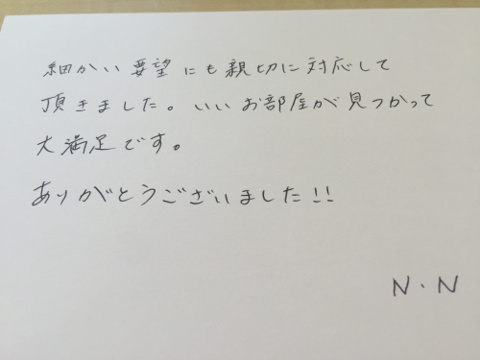 細かい要望にも親切に対応して
頂きました。いいお部屋が見つかって
大満足です。
ありがとうございました!!
N.N